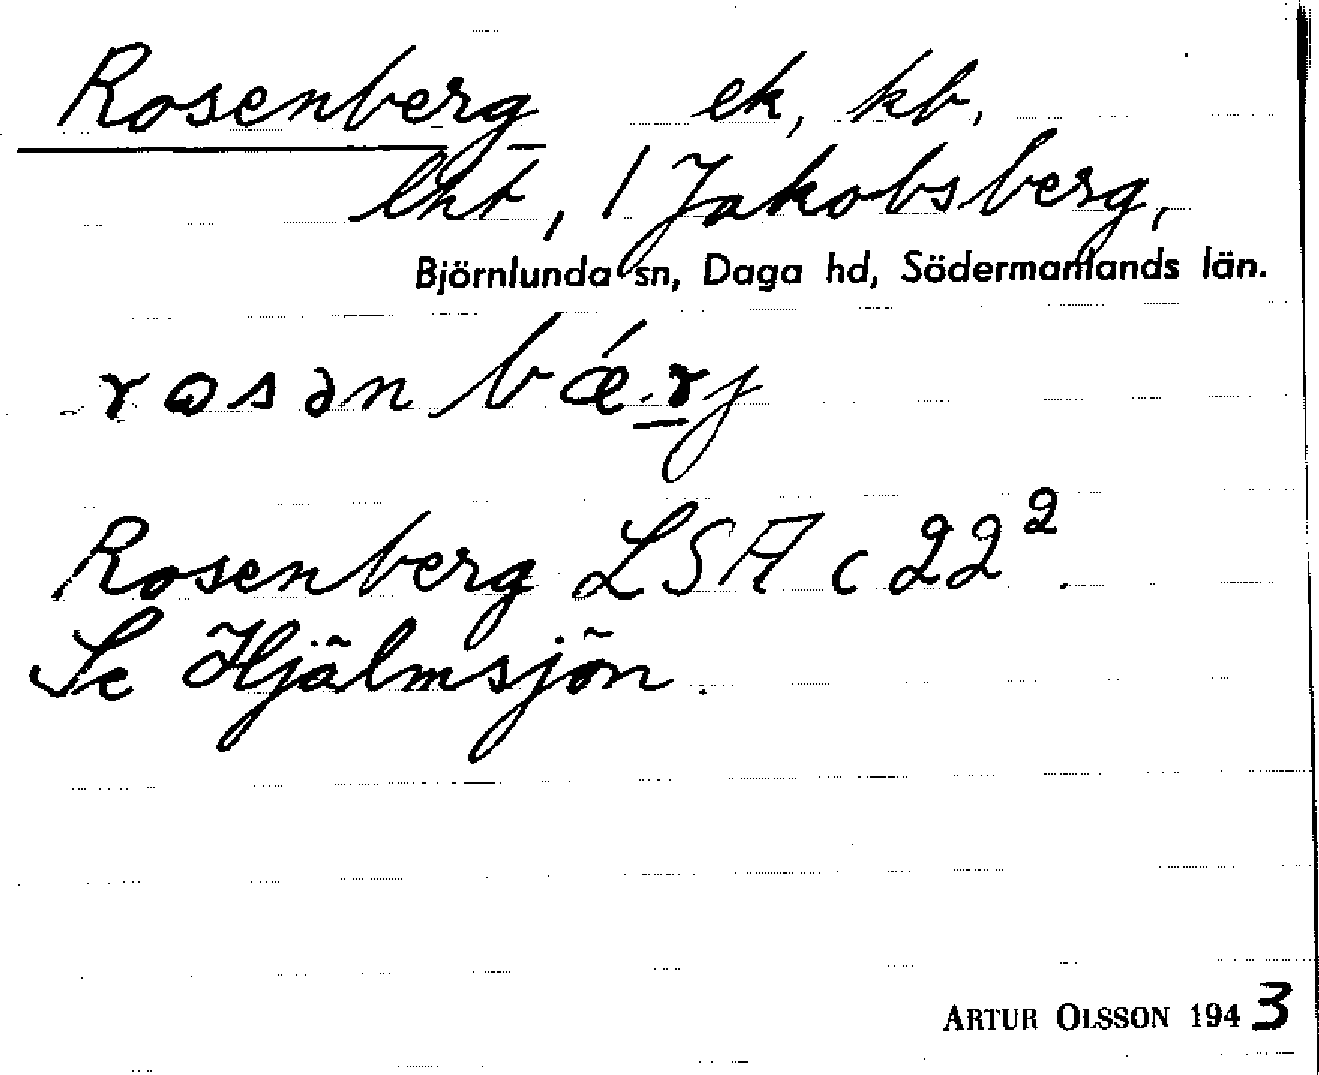 Rosenberg ek, kb,
lht, / Jakobsberg,
Björnlunda sn, Daga hd, Södermanlands län.
rosənbǽ.rj
Rosenberg LSA c 22²
Se Hjälmsjön.
ARTUR OLSSON 1943